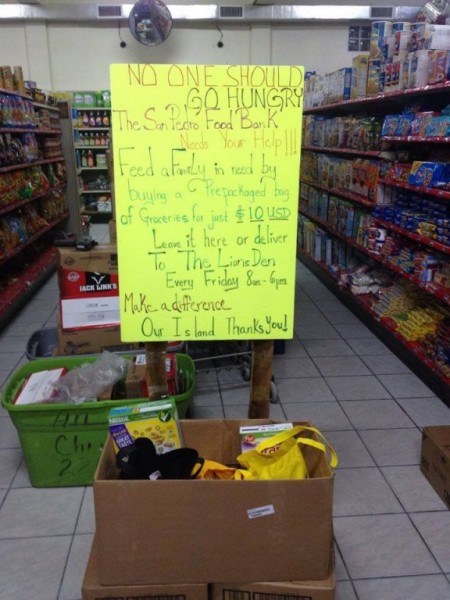 NO ONE SHOULD
GO HUNGRY
The San Pedro Food Bank
Needs Your Help!!!
Feed a Family in need by
buying a Prepackaged bag
of Groceries for just $10 USD
Leave it here or deliver
To The Lions Den
Every Friday 8am-6pm
Make a difference
Our Island Thanks You!
JACK LINK'S